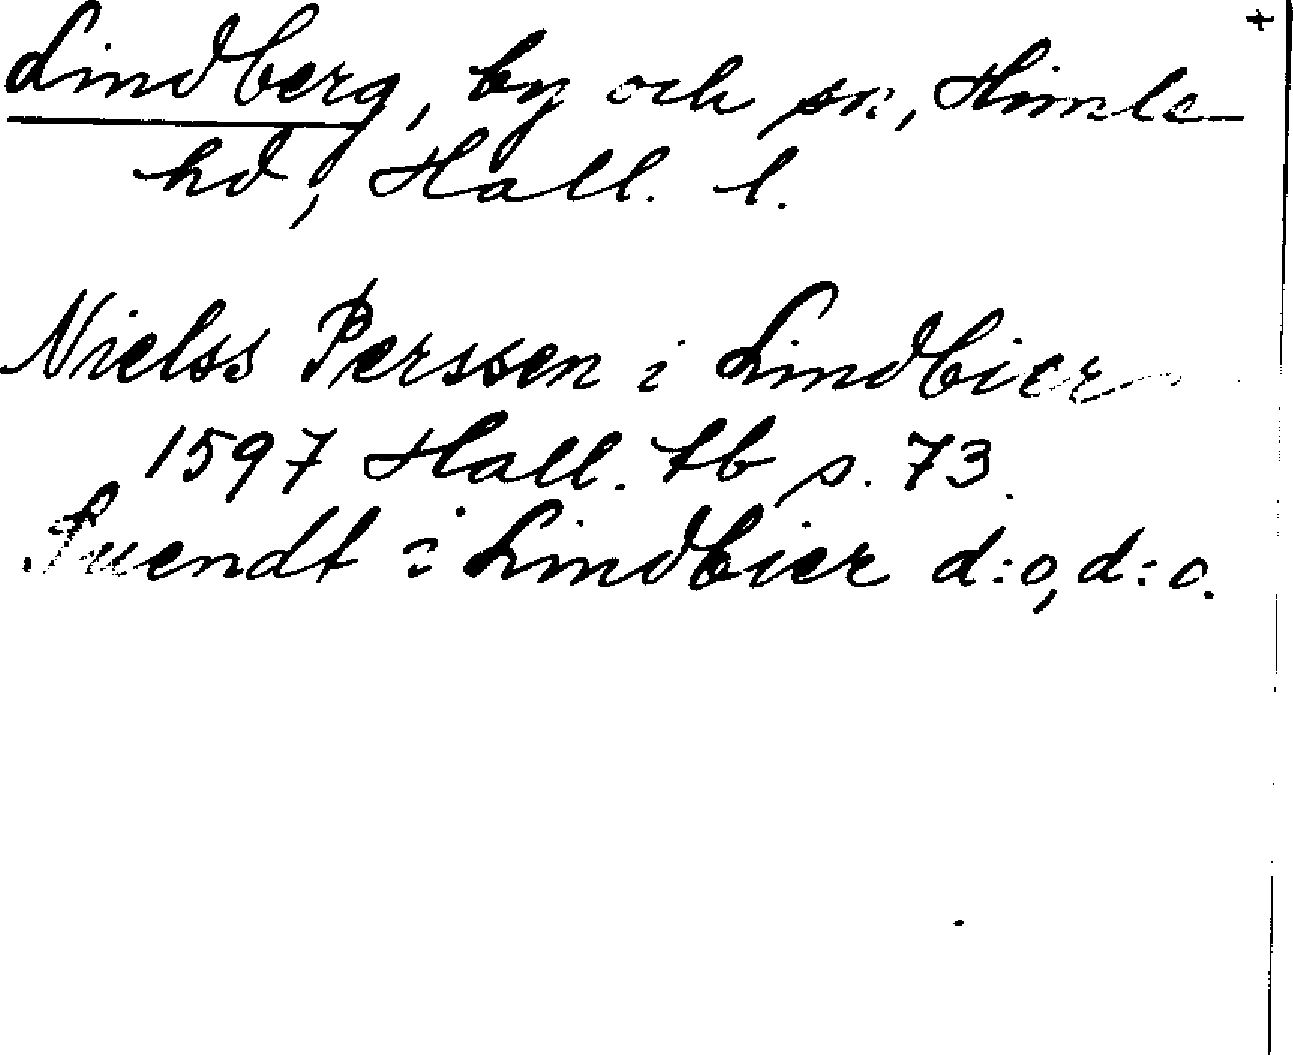 Lindberg, by och sn, Himle
hd, Hall. l.
Nielss Perssen i Lindbier
1597 Hall. tb s. 73.
Suendt i Lindbier d:o, d:o.